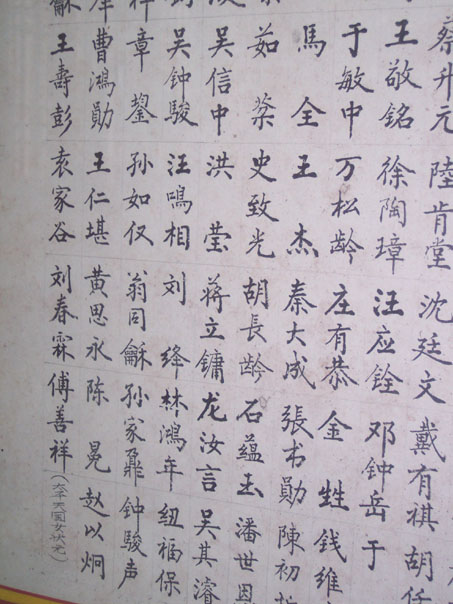 蔡升元 陸肯堂 沈廷文 戴有祺 胡任
王敬銘 徐陶璋 汪应铨 邓钟岳 于
于敏中 万松龄 庄有恭 金甡 钱维
馬全 王杰 秦大成 張书勛 陳初
茹棻 史致光 胡長龄 石蕴玉 潘世恩
吴信中 洪莹 蒋立镛 龙汝言 吴其濬
吴钟駿 汪鳴相 刘绎 林鴻年 纽福保
章鋆 孙如仅 翁同龢 孙家鼐 钟駿声
曹鴻勛 王仁堪 黄思永 陈冕 赵以炯
王壽彭 袁家谷 刘春霖 傅善祥(太平天国女状元)